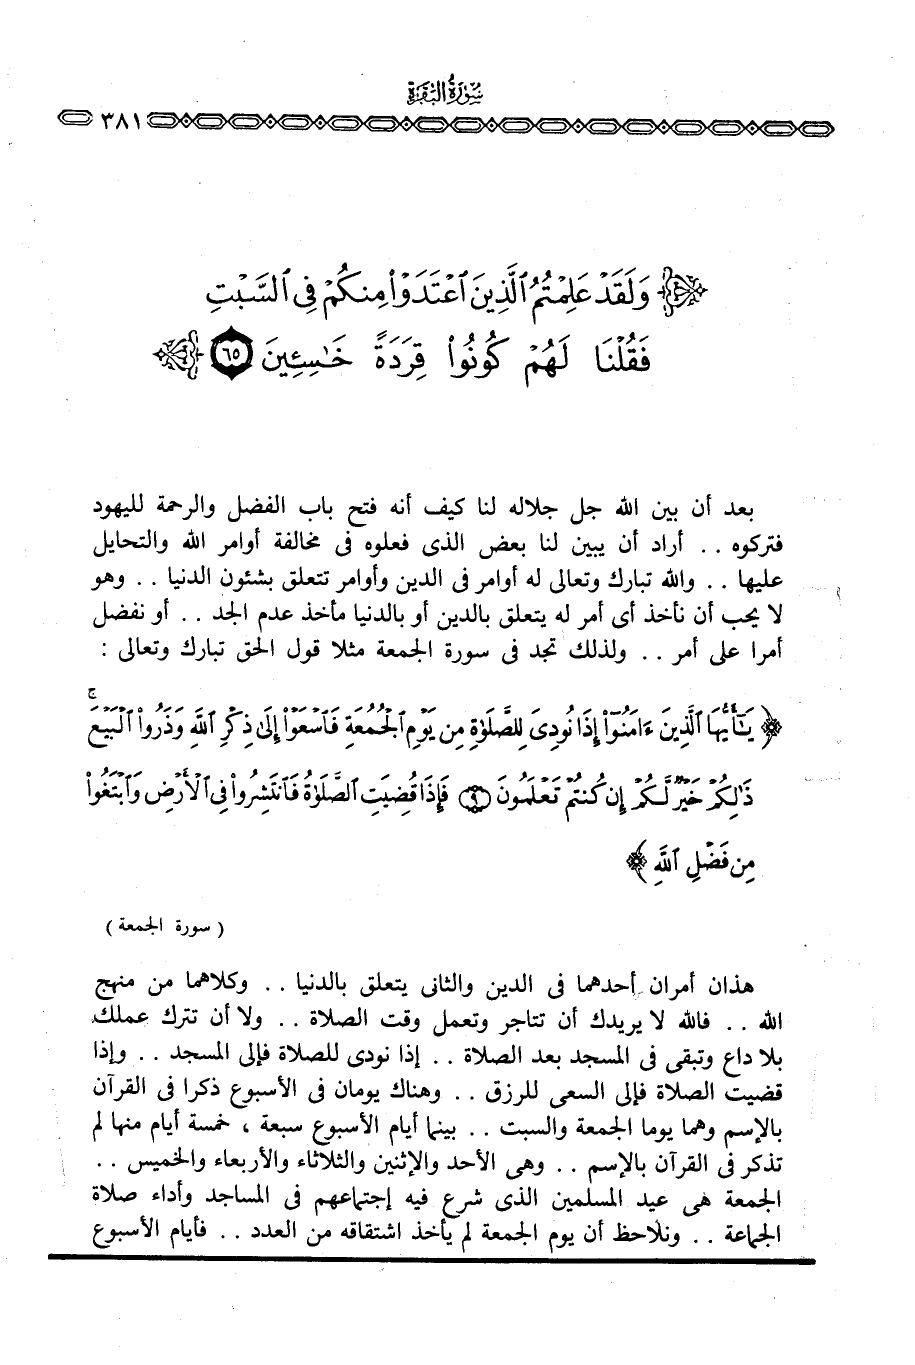 سورة البقرة
٣٨١
وَلَقَدْ عَلِمْتُمُ ٱلَّذِينَ ٱعْتَدَوْا۟ مِنكُمْ فِى ٱلسَّبْتِ
فَقُلْنَا لَهُمْ كُونُوا۟ قِرَدَةً خَٰسِـِٔينَ ٦٥
بعد أن بين الله جل جلاله لنا كيف أنه فتح باب الفضل والرحمة لليهود
فتركوه . . أراد أن يبين لنا بعض الذى فعلوه فى مخالفة أوامر الله والتحايل
عليها . . والله تبارك وتعالى له أوامر فى الدين وأوامر تتعلق بشئون الدنيا . . وهو
لا يحب أن نأخذ أى أمر له يتعلق بالدين أو بالدنيا مأخذ عدم الجد . . أو نفضل
أمرا على أمر . . ولذلك تجد فى سورة الجمعة مثلا قول الحق تبارك وتعالى :
﴿ يَٰٓأَيُّهَا ٱلَّذِينَ ءَامَنُوٓا۟ إِذَا نُودِىَ لِلصَّلَوٰةِ مِن يَوْمِ ٱلْجُمُعَةِ فَٱسْعَوْا۟ إِلَىٰ ذِكْرِ ٱللَّهِ وَذَرُوا۟ ٱلْبَيْعَ ۚ
ذَٰلِكُمْ خَيْرٌ لَّكُمْ إِن كُنتُمْ تَعْلَمُونَ ٩ فَإِذَا قُضِيَتِ ٱلصَّلَوٰةُ فَٱنتَشِرُوا۟ فِى ٱلْأَرْضِ وَٱبْتَغُوا۟
مِن فَضْلِ ٱللَّهِ ﴾
( سورة الجمعة )
هذان أمران أحدهما فى الدين والثانى يتعلق بالدنيا . . وكلاهما من منهج
الله . . فالله لا يريدك أن تتاجر وتعمل وقت الصلاة . . ولا أن تترك عملك
بلا داع وتبقى فى المسجد بعد الصلاة . . إذا نودى للصلاة فإلى المسجد . . وإذا
قضيت الصلاة فإلى السعى للرزق . . وهناك يومان فى الأسبوع ذكرا فى القرآن
بالإسم وهما يوما الجمعة والسبت . . بينما أيام الأسبوع سبعة ، خمسة أيام منها لم
تذكر فى القرآن بالإسم . . وهى الأحد والإثنين والثلاثاء والأربعاء والخميس . .
الجمعة هى عيد المسلمين الذى شرع فيه إجتماعهم فى المساجد وأداء صلاة
الجماعة . . ونلاحظ أن يوم الجمعة لم يأخذ اشتقاقه من العدد . . فأيام الأسبوع